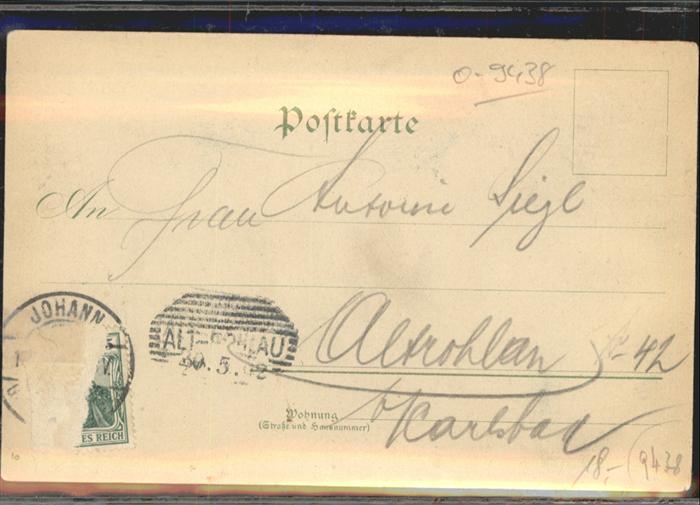 0-9438
Postkarte
An Frau Antonie Siegl
JOHANN
ALT-ROHLAU
20.5.02
Altrohlau No 42
ES REICH
Wohnung
(Straße und Hausnummer)
b/Karlsbad
18,- 9438